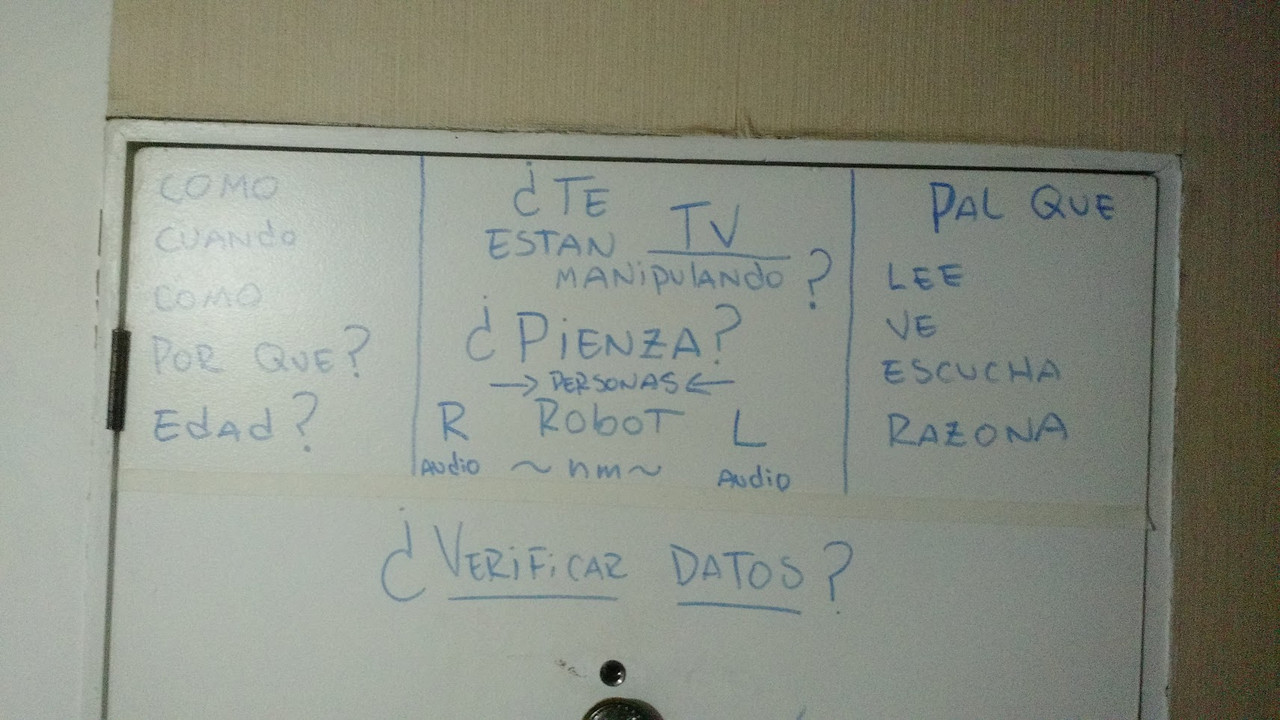 COMO
CUANDO
COMO
POR QUE?
EdAd?
¿TE
ESTAN TV
MANiPULANDO?
¿PiENZA?
→ PERSONAS ←
R ROBOT L
AUDiO ~ nm ~ AUDiO
PAL QUE
LEE
VE
ESCUCHA
RAZONA
¿VERiFiCAR DATOS?